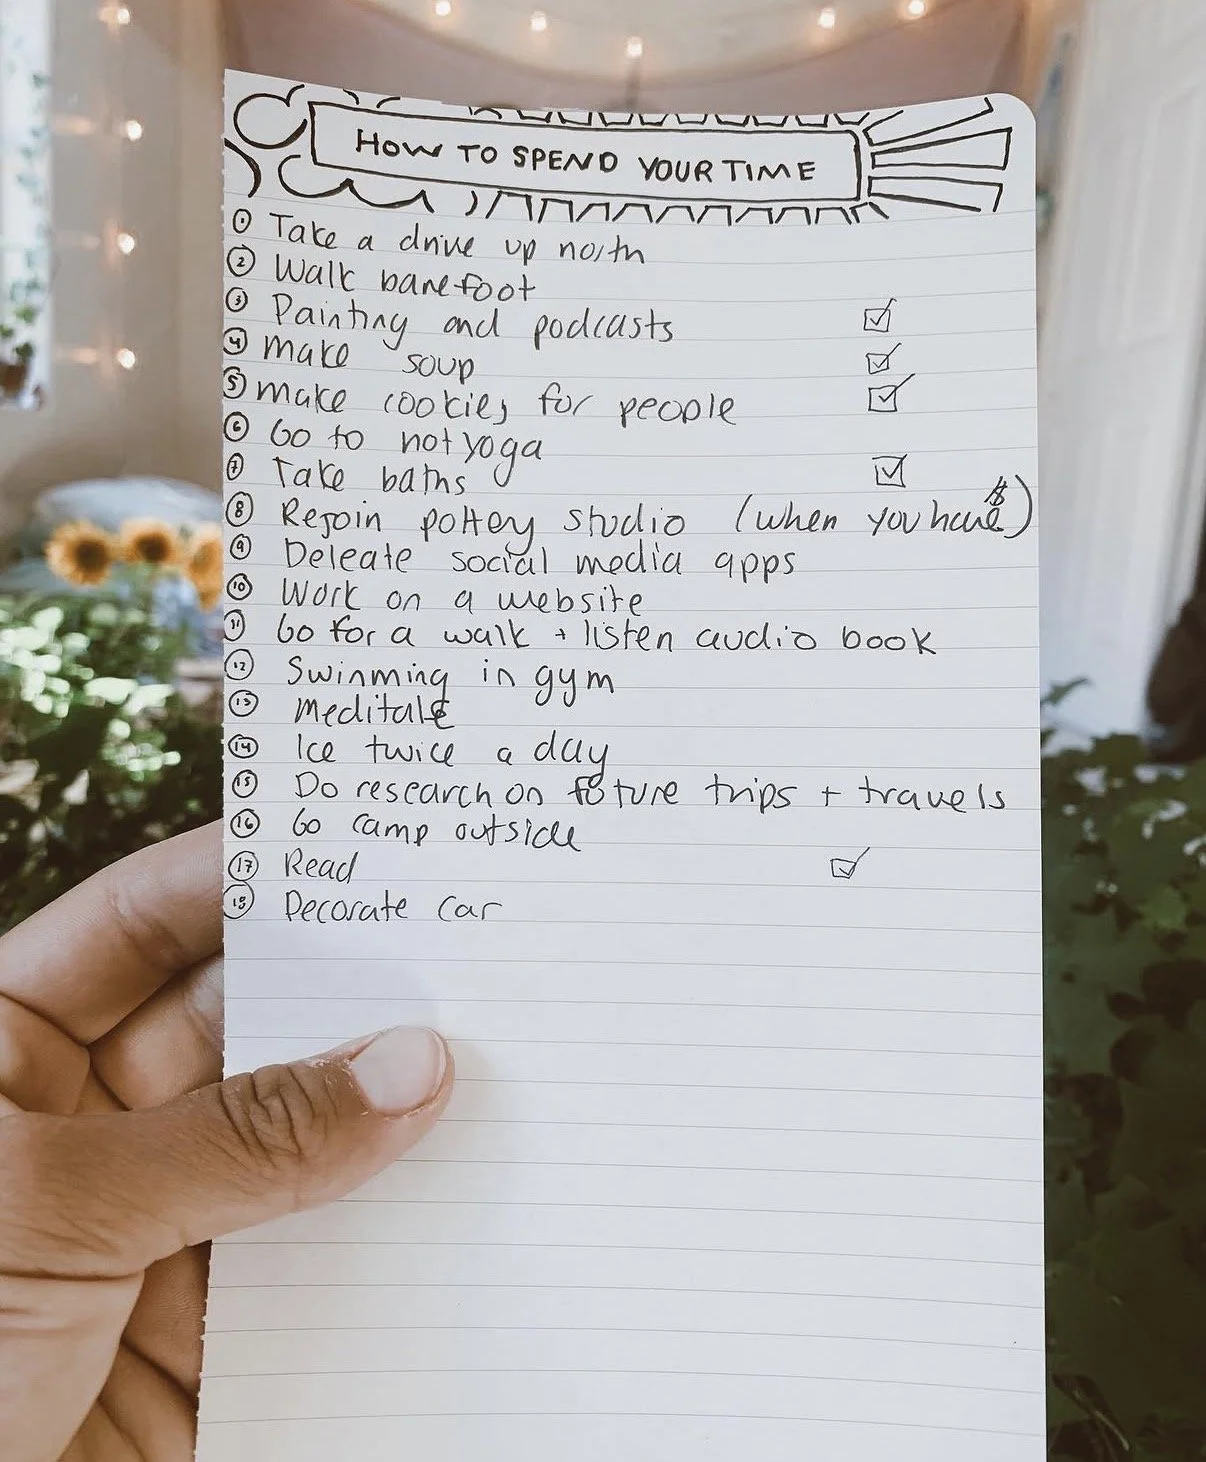 HOW TO SPEND YOUR TIME
① Take a drive up north
② Walk barefoot
③ Painting and podcasts ☑
④ make soup ☑
⑤ make cookies for people ☑
⑥ Go to hot yoga
⑦ Take baths ☑
⑧ Rejoin pottery studio (when you have $)
⑨ Deleate social media apps
⑩ Work on a website
⑪ Go for a walk + listen audio book
⑫ Swimming in gym
⑬ Meditate
⑭ Ice twice a day
⑮ Do research on future trips + travels
⑯ Go camp outside
⑰ Read ☑
⑱ Decorate car